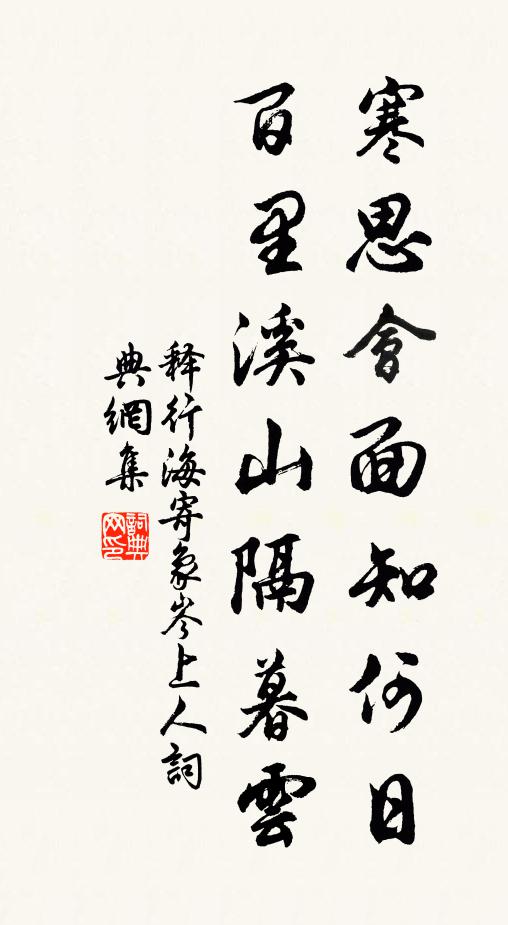 寒思會面知何日
百里溪山隔暮雲
释行海寄象岑上人詞
典網集
詞典網印